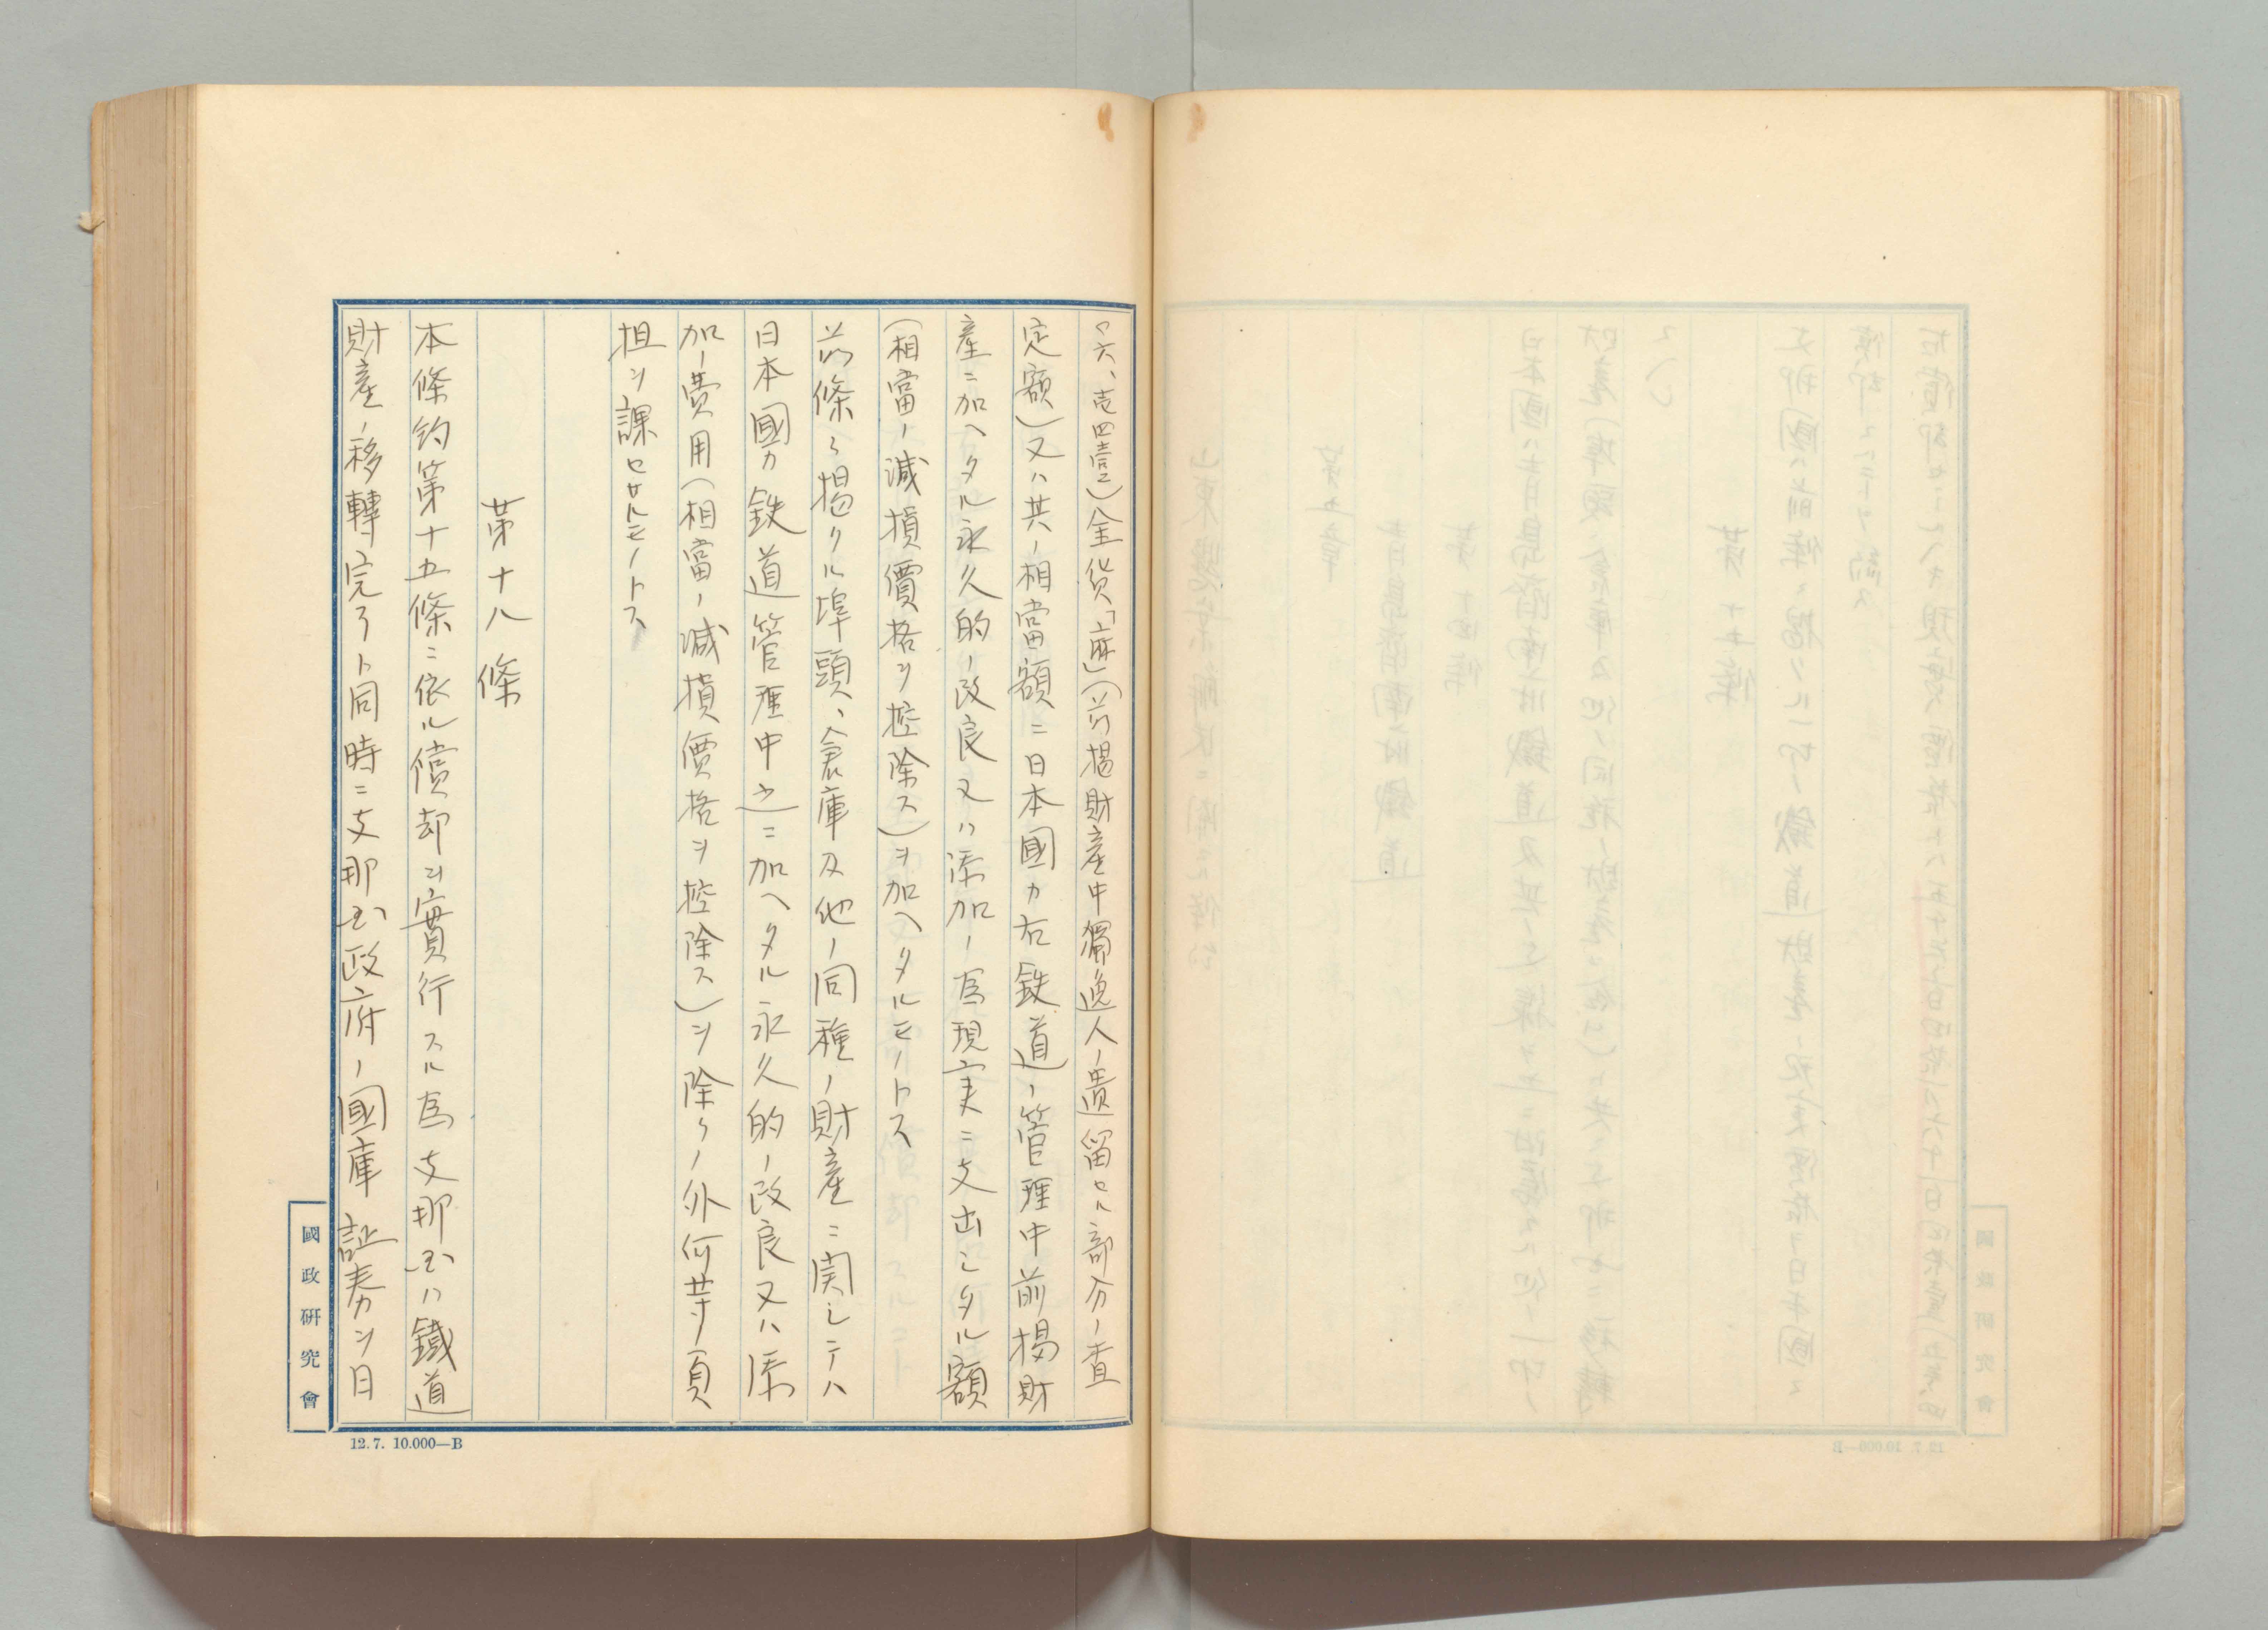 〇六、壱四壹)金貨「麻」(前掲財産中獨逸人ノ遺留セル部分ノ査
定額)又ハ其ノ相當額ニ日本國カ右鉄道ノ管理中前掲財
産ニ加ヘタル永久的ノ改良又ハ添加ノ為現実ニ支出シタル額
(相當ノ減損價格ヲ控除ス)ヲ加ヘタルモノトス
前條ニ掲クル埠頭、倉庫及他ノ同種ノ財産ニ関シテハ
日本國カ鉄道管理中之ニ加ヘタル永久的ノ改良又ハ添
加ノ費用(相當ノ減損價格ヲ控除ス)ヲ除クノ外何等ノ負
担ヲ課セサルモノトス
第十八條
本條約第十五條ニ依ル償却ヲ實行スル為支那国ハ鐵道
財産ノ移轉完了ト同時ニ支那国政府ノ國庫証券ヲ日
國政研究會
12.7. 10.000—B